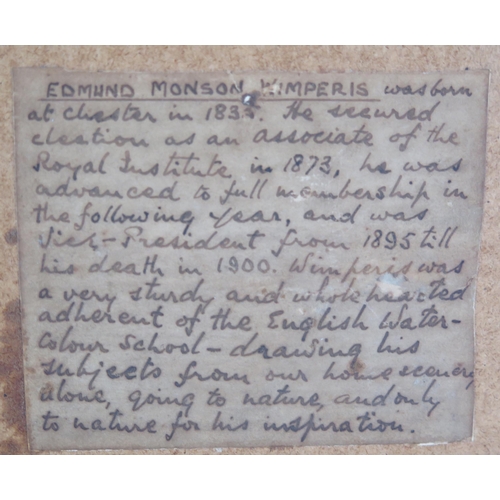 EDMUND MONSON WIMPERIS was born
at Chester in 1835. He secured
election as an associate of the
Royal Institute in 1873, he was
advanced to full membership in
the following year, and was
Vice-President from 1895 till
his death in 1900. Wimperis was
a very sturdy and wholehearted
adherent of the English Water-
Colour School - drawing his
subjects from our home scenery
alone, going to nature, and only
to nature for his inspiration.